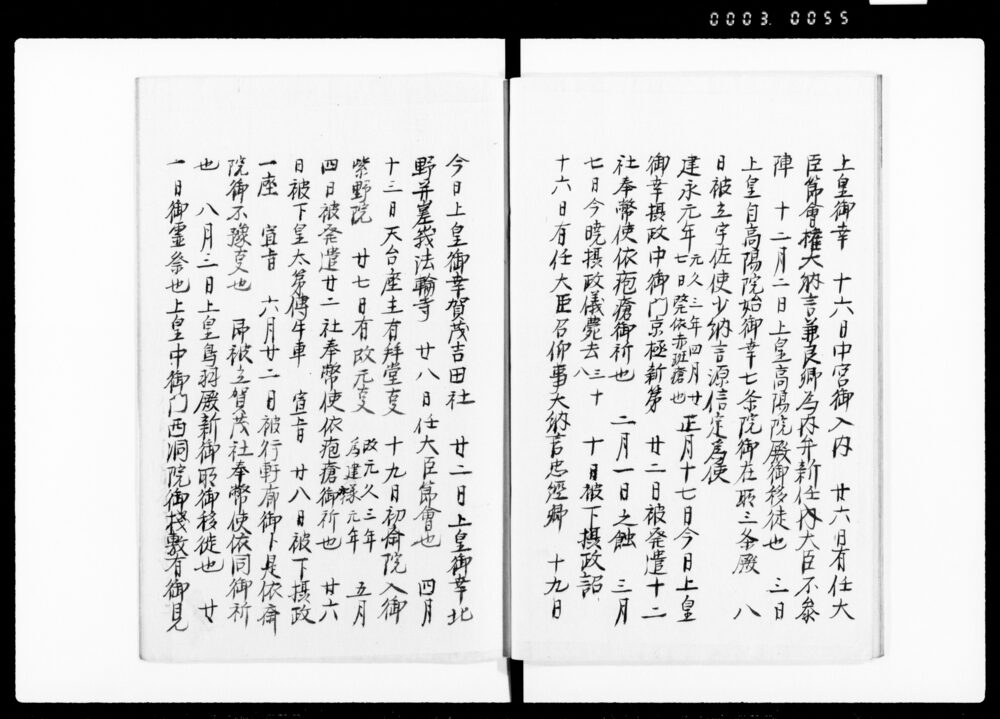 0003 0055
上皇御幸 十六日中宮御入内 廿六日有任大
臣節會權大納言兼良卿為内弁新任内大臣不参
陣 十二月二日上皇高陽院殿御移徙也 三日
上皇自高陽院始御幸七条院御在所三条殿 八
日被立宇佐使少納言源信定為使
建永元年 元久三年四月廿
七日発依赤斑瘡也 正月十七日今日上皇
御幸摂政中御門京極新第 廿二日被発遣十二
社奉幣使依疱瘡御祈也 二月一日之蝕 三月
七日今暁摂政儀薨去 三十
八 十日被下摂政詔
十六日有任大臣召仰事大納言忠經卿 十九日
今日上皇御幸賀茂吉田社 廿二日上皇御幸北
野并嵯峨法輪寺 廿八日任大臣節會也 四月
十三日天台座主有拝堂㕝 十九日初斎院入御
紫野院 廿七日有改元㕝 改元久三年
為建永元年 五月
四日被発遣廿二社奉幣使依疱瘡御祈也 廿六
日被下皇太弟傅牛車 宣旨 廿八日被下摂政
一座 宣旨 六月廿二日被行軒廊御卜是依斎
院御不豫㕝也 昂被立賀茂社奉幣使依同御祈
也 八月三日上皇鳥羽殿新御所御移徙也 廿
一日御霊祭也上皇中御門西洞院御桟敷有御見